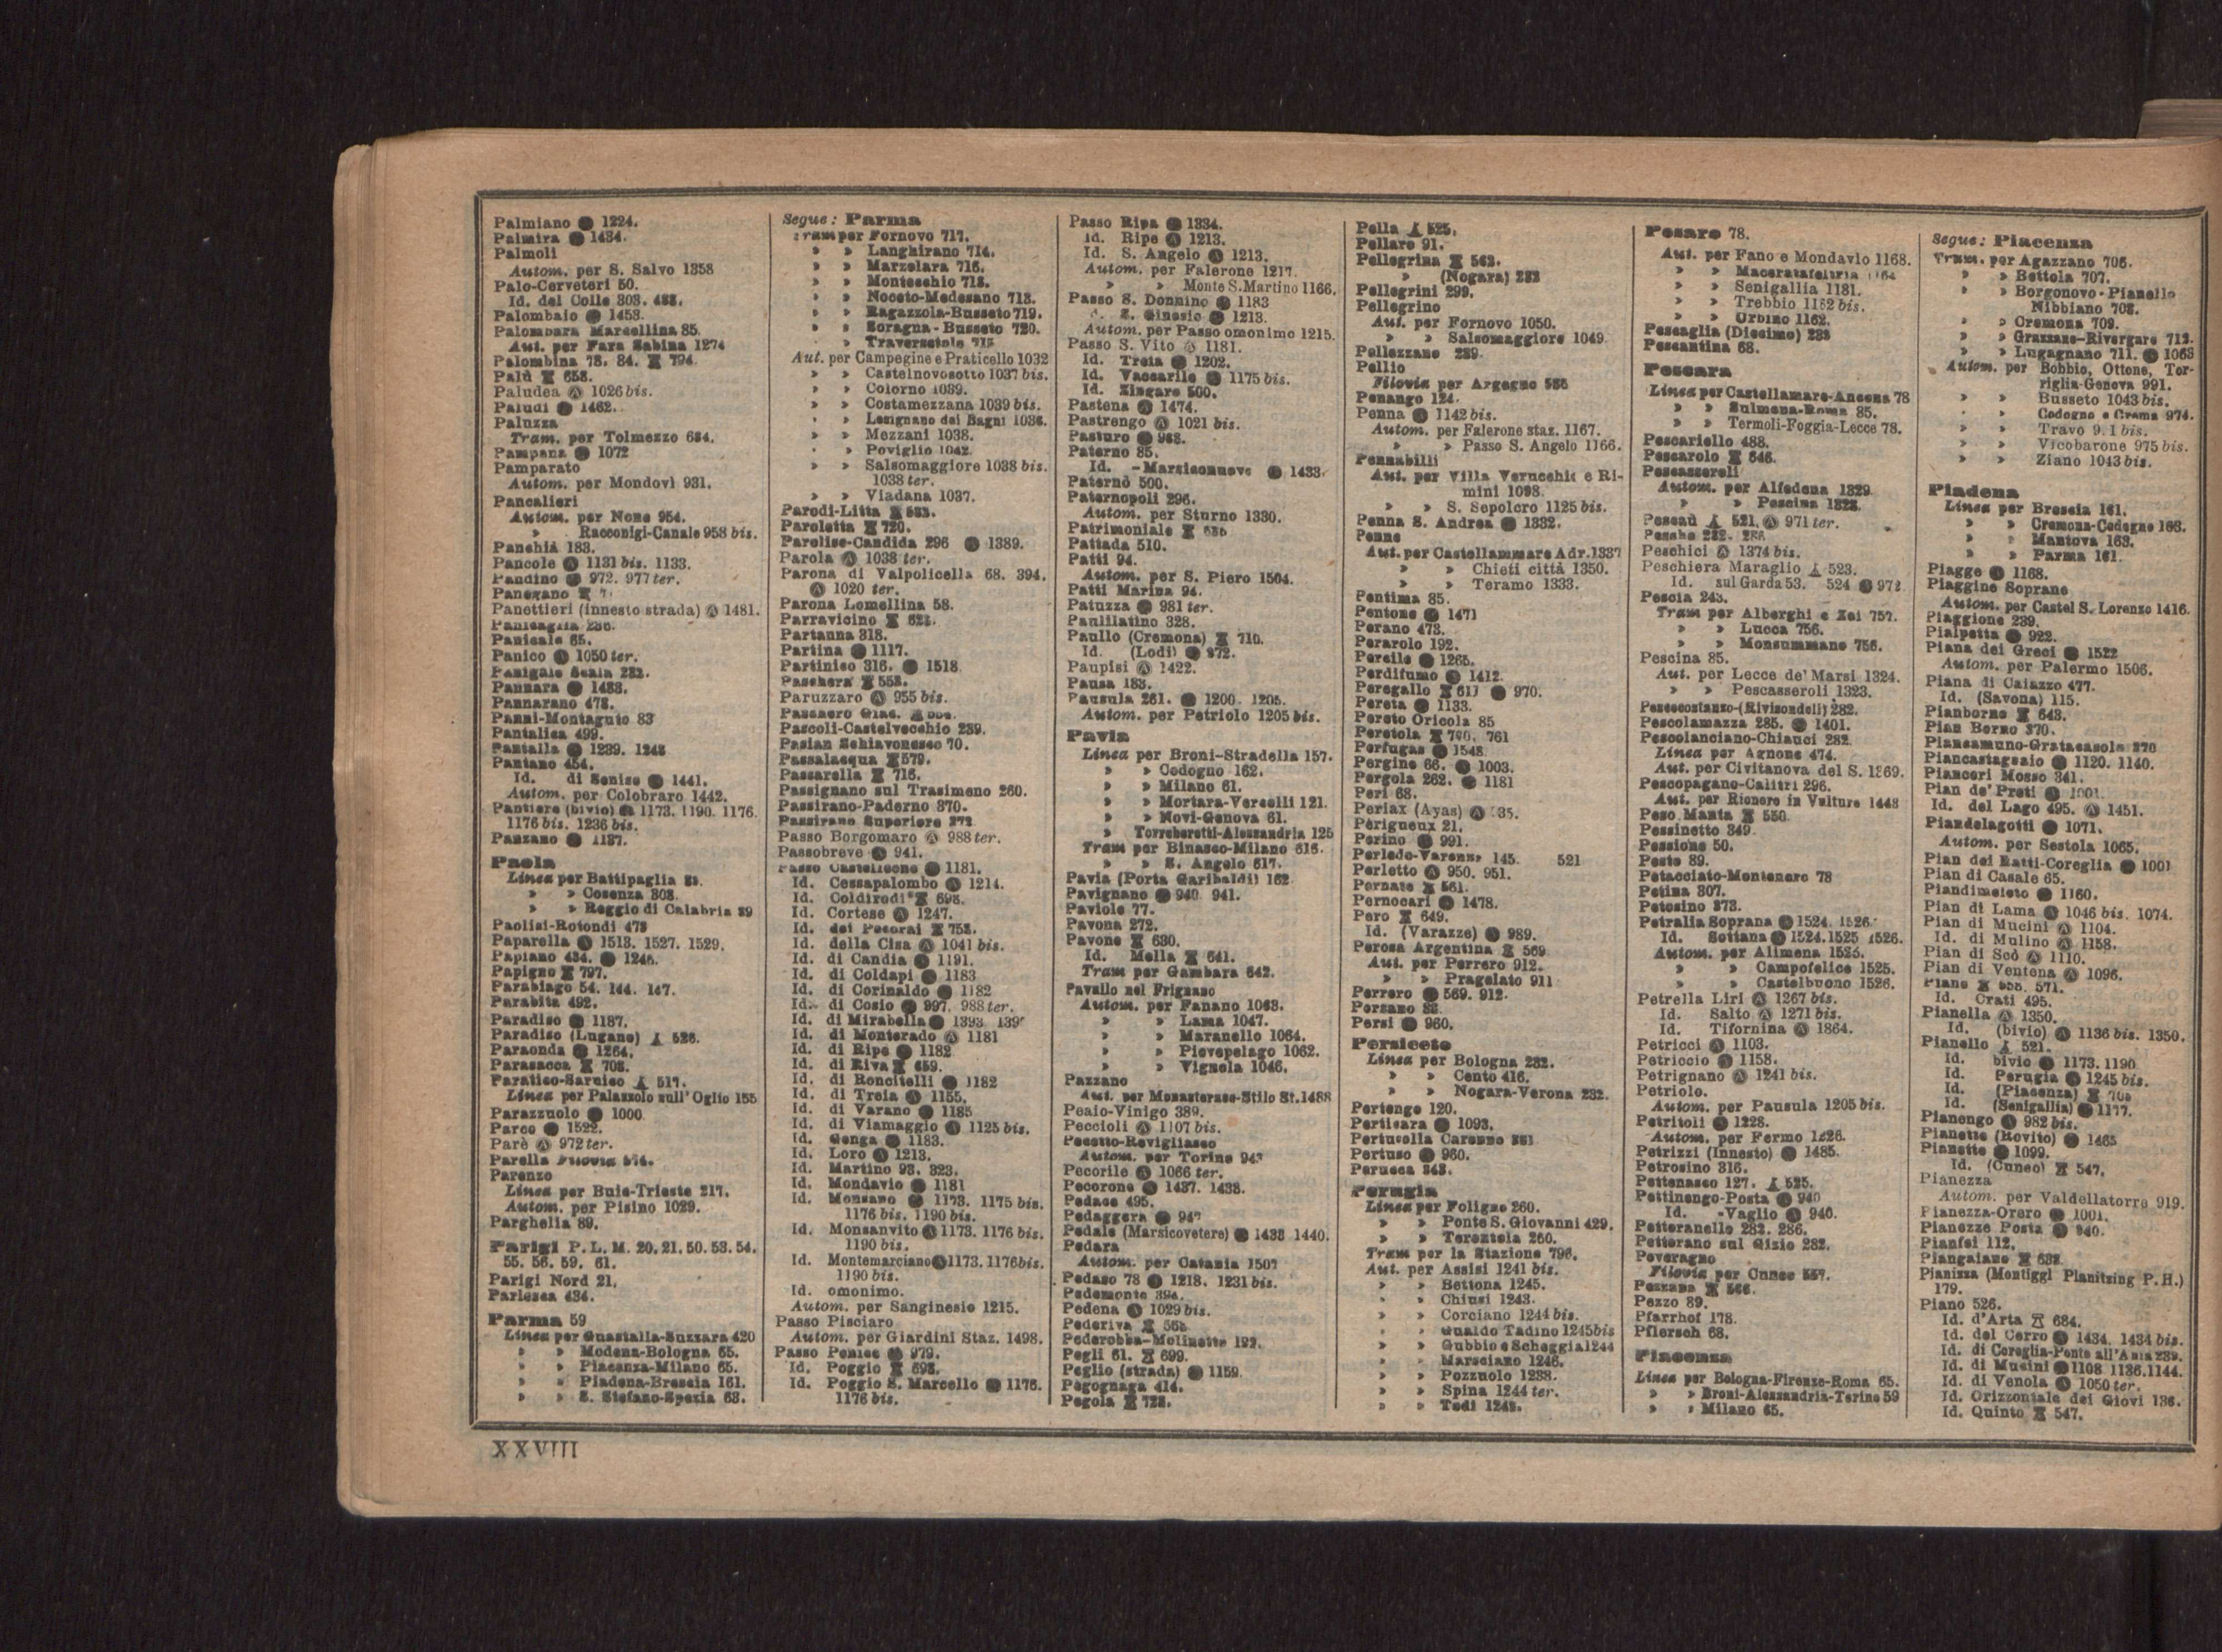 Palmiano Ⓐ 1224.
Palmira Ⓐ 1434.
Palmoli
Autom. per S. Salvo 1358
Palo-Cerveteri 50.
Id. del Colle 303. 488.
Palombaio Ⓐ 1453.
Palombara Marcellina 85.
Aut. per Fara Sabina 1274
Palombina 78. 84. 794.
Palù 658.
Paludea Ⓐ 1026 bis.
Paludi Ⓐ 1462.
Paluzza
Tram. per Tolmezzo 684.
Pampana Ⓐ 1072
Pamparato
Autom. per Mondovì 931.
Pancalieri
Autom. per None 954.
» Racconigi-Canale 958 bis.
Panchià 183.
Pancole Ⓐ 1131 bis. 1133.
Pandino Ⓐ 972. 977 ter.
Panegano
Panettieri (innesto strada) Ⓐ 1481.
Panicaglia 236.
Panicale 65.
Panico Ⓐ 1050 ter.
Panigale Scala 232.
Pannara Ⓐ 1433.
Pannarano 478.
Panni-Montaguto 83
Pantalica 499.
Pantalla Ⓐ 1239. 1248
Pantano 454.
Id. di Senise Ⓐ 1441.
Autom. per Colobraro 1442.
Pantiere (bivio) Ⓐ 1173. 1190. 1176.
1176 bis. 1236 bis.
Panzano Ⓐ 1137.
Paola
Linea per Battipaglia
» » Cosenza 303.
» » Reggio di Calabria 89
Paolisi-Rotondi 478
Paparella Ⓐ 1513. 1527. 1529.
Papiano 434. Ⓐ 1246.
Papigno 797.
Parabiago 54. 144. 147.
Parabita 492.
Paradiso Ⓐ 1187.
Paradiso (Lugano) 526.
Paraonda Ⓐ 1264.
Parasacca 708.
Paratico-Sarnico 517.
Linea per Palazzolo sull' Oglio 155
Parazzuolo Ⓐ 1000
Parco Ⓐ 1522.
Parè Ⓐ 972 ter.
Parella Filovia
Parenzo
Linea per Buie-Trieste 217.
Autom. per Pisino 1029.
Parghelia 89.
Parigi P. L. M. 20. 21. 50. 53. 54.
55. 56. 59. 61.
Parigi Nord 21.
Parlesca 434.
Parma 59
Linea per Guastalla-Suzzara 420
» » Modena-Bologna 65.
» » Piacenza-Milano 65.
» » Piadena-Brescia 161.
» » S. Stefano-Spezia 63.
Segue: Parma
Tram per Fornovo 717.
» » Langhirano 714.
» » Marzolara 716.
» » Montecchio 718.
» » Noceto-Medesano 713.
» » Ragazzola-Busseto 719.
» » Soragna - Busseto 720.
» » Traversetolo 715
Aut. per Campegine e Praticello 1032
» » Castelnovosotto 1037 bis.
» » Colorno 1039.
» » Costamezzana 1039 bis.
» » Lesignano dei Bagni 1036.
» » Mezzani 1038.
» » Poviglio 1042.
» » Salsomaggiore 1038 bis.
1038 ter.
» » Viadana 1037.
Parodi-Litta 583.
Paroletta 720.
Parolise-Candida 296 Ⓐ 1389.
Parola Ⓐ 1038 ter.
Parona di Valpolicella 68. 394.
Ⓐ 1020 ter.
Parona Lomellina 58.
Parravicino
Partanna 318.
Partina Ⓐ 1117.
Partinico 316. Ⓐ 1518
Paschera 553.
Paruzzaro Ⓐ 955 bis.
Pascoli-Castelvecchio 239.
Pasian Schiavonesco 70.
Passalacqua 579.
Passarella 716.
Passignano sul Trasimeno 260.
Passirano-Paderno 370.
Passirano Superiore 373
Passo Borgomaro Ⓐ 988 ter.
Passobreve Ⓐ 941.
Passo Castelleone Ⓐ 1181.
Id. Cessapalombo Ⓐ 1214.
Id. Coldirodi 698.
Id. Cortese Ⓐ 1247.
Id. dei Pecorai 753.
Id. della Cisa Ⓐ 1041 bis.
Id. di Candia Ⓐ 1191.
Id. di Coldapi Ⓐ 1183
Id. di Corinaldo Ⓐ 1182
Id. di Cosio Ⓐ 997. 988 ter.
Id. di Mirabella Ⓐ 1393
Id. di Monterado Ⓐ 1181
Id. di Ripe Ⓐ 1182
Id. di Riva 659.
Id. di Roncitelli Ⓐ 1182
Id. di Treia Ⓐ 1155.
Id. di Varano Ⓐ 1185
Id. di Viamaggio Ⓐ 1125 bis.
Id. Genga Ⓐ 1183.
Id. Loro Ⓐ 1213.
Id. Martino 93. 323.
Id. Mondavio Ⓐ 1181
Id. Monsano Ⓐ 1173. 1175 bis.
1176 bis. 1190 bis.
Id. Monsanvito Ⓐ 1173. 1176 bis.
1190 bis.
Id. Montemarciano Ⓐ 1173. 1176 bis.
1190 bis.
Id. omonimo.
Autom. per Sanginesio 1215.
Passo Pisciaro
Autom. per Giardini Staz. 1498.
Passo Penice Ⓐ 979.
Id. Poggio 698.
Id. Poggio S. Marcello Ⓐ 1176.
1176 bis.
Passo Ripa Ⓐ 1334.
Id. Ripe Ⓐ 1213.
Id. S. Angelo Ⓐ 1213.
Autom. per Falerone 1217.
» » Monte S. Martino 1166.
Passo S. Donnino Ⓐ 1183
S. Ginesio Ⓐ 1213.
Autom. per Passo omonimo 1215.
Passo S. Vito Ⓐ 1181.
Id. Treia Ⓐ 1202.
Id. Vaccarile Ⓐ 1175 bis.
Id. Zingaro 500.
Pastena Ⓐ 1474.
Pastrengo Ⓐ 1021 bis.
Pasturo Ⓐ 968.
Paterno 85.
Id. - Marsiconuovo Ⓐ 1433.
Paternò 500.
Paternopoli 296.
Autom. per Sturno 1330.
Patrimoniale
Pattada 510.
Patti 94.
Autom. per S. Piero 1504.
Patti Marina 94.
Patuzza Ⓐ 981 ter.
Paulilatino 328.
Paullo (Cremona) 710.
Id. (Lodi) Ⓐ 972.
Paupisi Ⓐ 1422.
Pausa 183.
Pausula 261. Ⓐ 1200. 1205.
Autom. per Petriolo 1205 bis.
Pavia
Linea per Broni-Stradella 157.
» » Codogno 162.
» » Milano 61.
» » Mortara-Vercelli 121.
» » Novi-Genova 61.
» Torreberetti-Alessandria 125
Tram per Binasco-Milano 616.
» » S. Angelo 617.
Pavia (Porta Garibaldi) 162
Pavignano Ⓐ 940. 941.
Paviole 77.
Pavona 272.
Pavone 630.
Id. Mella 641.
Tram per Gambara 642.
Pavullo nel Frignano
Autom. per Fanano 1063.
» » Lama 1047.
» » Maranello 1064.
» » Pievepelago 1062.
» » Vignola 1046.
Pazzano
Aut. per Monasterace-Stilo St. 1488
Peaio-Vinigo 389.
Peccioli Ⓐ 1107 bis.
Pecetto-Revigliasco
Autom. per Torino
Pecorile Ⓐ 1066 ter.
Pecorone Ⓐ 1437. 1438.
Pedace 495.
Pedaggera Ⓐ 947
Pedale (Marsicovetere) Ⓐ 1433 1440.
Pedara
Autom. per Catania 1507
Pedaso 78 Ⓐ 1218. 1231 bis.
Pedemonte 394.
Pedena Ⓐ 1029 bis.
Pederiva
Pederobba-Molinetto 192.
Pegli 61. 699.
Peglio (strada) Ⓐ 1159.
Pegognaga 414.
Pegola 728.
Pella 525.
Pellaro 91.
Pellegrina 563.
» (Nogara) 232
Pellegrini 299.
Pellegrino
Aut. per Fornovo 1050.
» » Salsomaggiore 1049.
Pellezzano 289.
Pellio
Filovia per Argegno
Penango 124.
Penna Ⓐ 1142 bis.
Autom. per Falerone staz. 1167.
» » Passo S. Angelo 1166.
Pennabilli
Aut. per Villa Verucchio e Ri-
mini 1098.
» » S. Sepolcro 1125 bis.
Penna S. Andrea Ⓐ 1332.
Penne
Aut. per Castellammare Adr. 1337
» » Chieti città 1350.
» » Teramo 1333.
Pentima 85.
Pentone Ⓐ 1471
Perano 473.
Perarolo 192.
Percile Ⓐ 1265.
Perdifumo Ⓐ 1412.
Peregallo 617 Ⓐ 970.
Pereta Ⓐ 1133.
Pereto Oricola 85
Peretola 760. 761
Perfugas Ⓐ 1548.
Pergine 66. Ⓐ 1003.
Pergola 262. Ⓐ 1181
Peri 68.
Periax (Ayas) Ⓐ
Périgueux 21.
Perino Ⓐ 991.
Perledo-Varenna 145. 521
Perletto Ⓐ 950. 951.
Pernate 561.
Pernocari Ⓐ 1478.
Pero 649.
Id. (Varazze) Ⓐ 989.
Perosa Argentina 569
Aut. per Perrero 912.
» » Pragelato 911
Perrero Ⓐ 569. 912.
Persano
Persi Ⓐ 960.
Persiceto
Linea per Bologna 232.
» » Cento 416.
» » Nogara-Verona 232.
Pertengo 120.
Perticara Ⓐ 1093.
Pertusella Caronno
Pertuso Ⓐ 960.
Perugia
Linea per Foligno 260.
» » Ponte S. Giovanni 429.
» » Terontola 260.
Tram per la Stazione 796.
Aut. per Assisi 1241 bis.
» » Bettona 1245.
» » Chiusi 1243.
» » Corciano 1244 bis.
» » Gualdo Tadino 1245 bis
» » Gubbio e Scheggia 1244
» » Marsciano 1246.
» » Pozzuolo 1238.
» » Spina 1244 ter.
» » Todi 1248.
Pesaro 78.
Aut. per Fano e Mondavio 1168.
» » Maceratafeltria 1164
» » Senigallia 1181.
» » Trebbio 1162 bis.
» » Urbino 1162.
Pescaglia (Diecimo) 238
Pescantina 68.
Pescara
Linea per Castellamare-Ancona 78
» » Sulmona-Roma 85.
» » Termoli-Foggia-Lecce 78.
Pescariello 488.
Pescarolo 646.
Pescasseroli
Autom. per Alfedena 1329
» » Pescina 1323.
Pescaù 521. Ⓐ 971 ter.
Pesche 282. 286
Peschici Ⓐ 1374 bis.
Peschiera Maraglio 523.
Id. sul Garda 53. 524 Ⓐ 972
Pescia 243.
Tram per Alberghi e Zei 757.
» » Lucca 756.
» » Monsummano 756.
Pescina 85.
Aut. per Lecce de' Marsi 1324.
» » Pescasseroli 1323.
Pescocostanzo-(Rivisondoli) 282.
Pescolamazza 285. Ⓐ 1401.
Pescolanciano-Chiauci 282
Linea per Agnone 474.
Aut. per Civitanova del S. 1369.
Pescopagano-Calitri 296.
Aut. per Rionero in Vulture 1448
Peso Manta 550.
Pessinetto 349.
Pessione 50.
Pesto 89.
Petacciato-Montenero 78
Petina 307.
Petosino 373.
Petralia Soprana Ⓐ 1524. 1526.
Id. Sottana Ⓐ 1524. 1525 1526.
Autom. per Alimena 1525.
» » Campofelice 1525.
» » Castelbuono 1526.
Petrella Liri Ⓐ 1267 bis.
Id. Salto Ⓐ 1271 bis.
Id. Tifernina Ⓐ 1364.
Petricci Ⓐ 1103.
Petriccio Ⓐ 1158.
Petrignano Ⓐ 1241 bis.
Petriolo.
Autom. per Pausula 1205 bis.
Petritoli Ⓐ 1228.
Autom. per Fermo 1226.
Petrizzi (Innesto) Ⓐ 1485.
Petrosino 316.
Pettenasco 127. 525.
Pettinengo-Posta Ⓐ 940
Id. -Vaglio Ⓐ 940.
Pettoranello 282. 286.
Pettorano sul Gizio 282.
Peveragno
Filovia per Cuneo 557.
Pezzana 566.
Pezzo 89.
Pfarrhof 178.
Pflersch 68.
Piacenza
Linea per Bologna-Firenze-Roma 65.
» » Broni-Alessandria-Torino 59
» » Milano 65.
Segue: Piacenza
Tram. per Agazzano 706.
» » Bettola 707.
» » Borgonovo - Pianello
Nibbiano 708.
» » Cremona 709.
» » Grazzano-Rivergaro 712.
» » Lugagnano 711. Ⓐ 1063
Autom. per Bobbio, Ottone, Tor-
riglia-Genova 991.
» » Busseto 1043 bis.
» » Codogno e Crema 974.
» » Travo 991 bis.
» » Vicobarone 975 bis.
» » Ziano 1043 bis.
Piadena
Linea per Brescia 161.
» » Cremona-Codogno 163.
» » Mantova 163.
» » Parma 161.
Piagge Ⓐ 1168.
Piaggine Soprane
Autom. per Castel S. Lorenzo 1416.
Piaggione 239.
Pialpetta Ⓐ 922.
Piana dei Greci Ⓐ 1522
Autom. per Palermo 1506.
Piana di Caiazzo 477.
Id. (Savona) 115.
Pianborno 643.
Pian Borno 370.
Piancamuno-Gratacasolo 370
Piancastagnaio Ⓐ 1120. 1140.
Pianceri Mosso 341.
Pian de' Preti Ⓐ 1001.
Id. del Lago 495. Ⓐ 1451.
Piandelagotti Ⓐ 1071.
Autom. per Sestola 1065.
Pian dei Ratti-Coreglia Ⓐ 1001
Pian di Casale 65.
Piandimeleto Ⓐ 1160.
Pian di Lama Ⓐ 1046 bis. 1074.
Pian di Mucini Ⓐ 1104.
Id. di Mulino Ⓐ 1158.
Pian di Scò Ⓐ 1110.
Pian di Ventena Ⓐ 1096.
Piane 571.
Id. Crati 495.
Pianella Ⓐ 1350.
Id. (bivio) Ⓐ 1136 bis. 1350.
Pianello 521.
Id. bivio Ⓐ 1173. 1190
Id. Perugia Ⓐ 1245 bis.
Id. (Piacenza) 708
Id. (Senigallia) Ⓐ 1177.
Pianengo Ⓐ 982 bis.
Pianette (Rovito) Ⓐ 1465
Pianette Ⓐ 1099.
Id. (Cuneo) 547.
Pianezza
Autom. per Valdellatorre 919.
Pianezza-Orero Ⓐ 1001.
Pianezze Posta Ⓐ 940.
Pianfei 112.
Piangaiano 632.
Pianizza (Montiggl Planitzing P. H.)
179.
Piano 526.
Id. d'Arta 684.
Id. del Cerro Ⓐ 1434. 1434 bis.
Id. di Coreglia-Ponte all'Ania 239.
Id. di Mucini Ⓐ 1108 1136. 1144.
Id. di Venola Ⓐ 1050 ter.
Id. Orizzontale dei Giovi 136.
Id. Quinto 547.
XXVIII